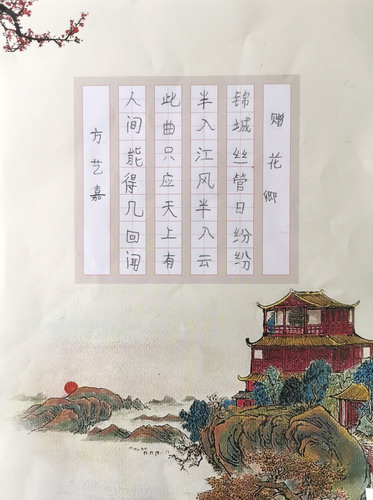 赠花卿
锦城丝管日纷纷
半入江风半入云
此曲只应天上有
人间能得几回闻
方艺嘉